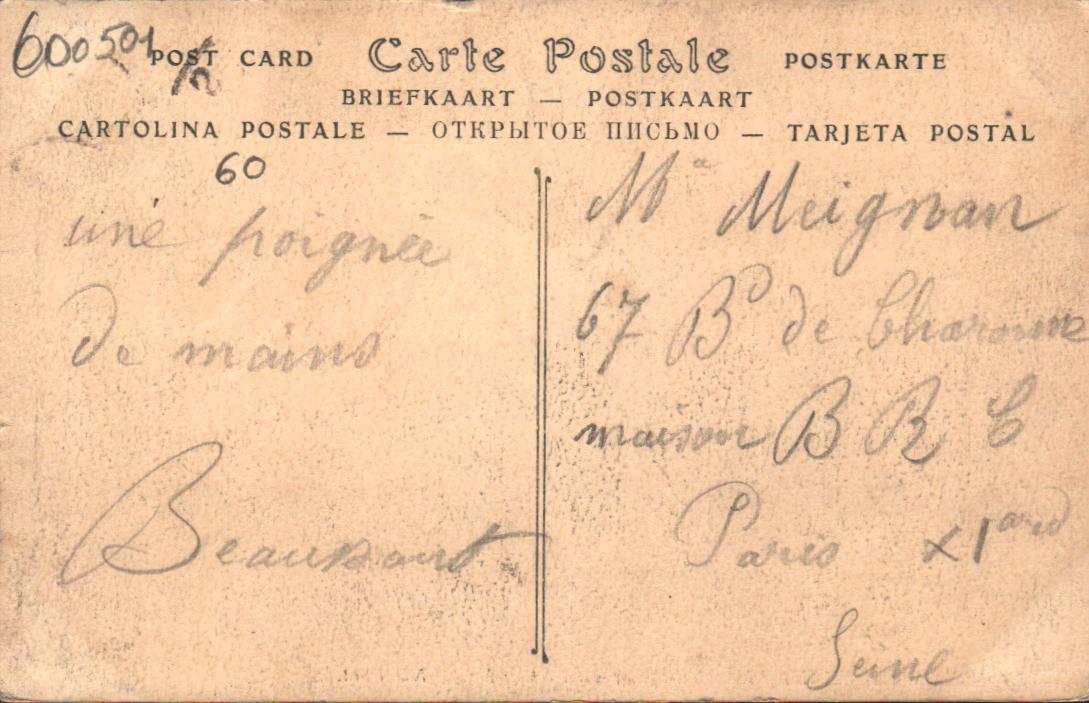 600501
POST CARD Carte Postale POSTKARTE
BRIEFKAART — POSTKAART
CARTOLINA POSTALE — ОТКРЫТОЕ ПИСЬМО — TARJETA POSTAL
60
une poignée
de mains
Mr Meignan
67 Bd de Charonne
maison B R C
Paris X1 ard
Seine